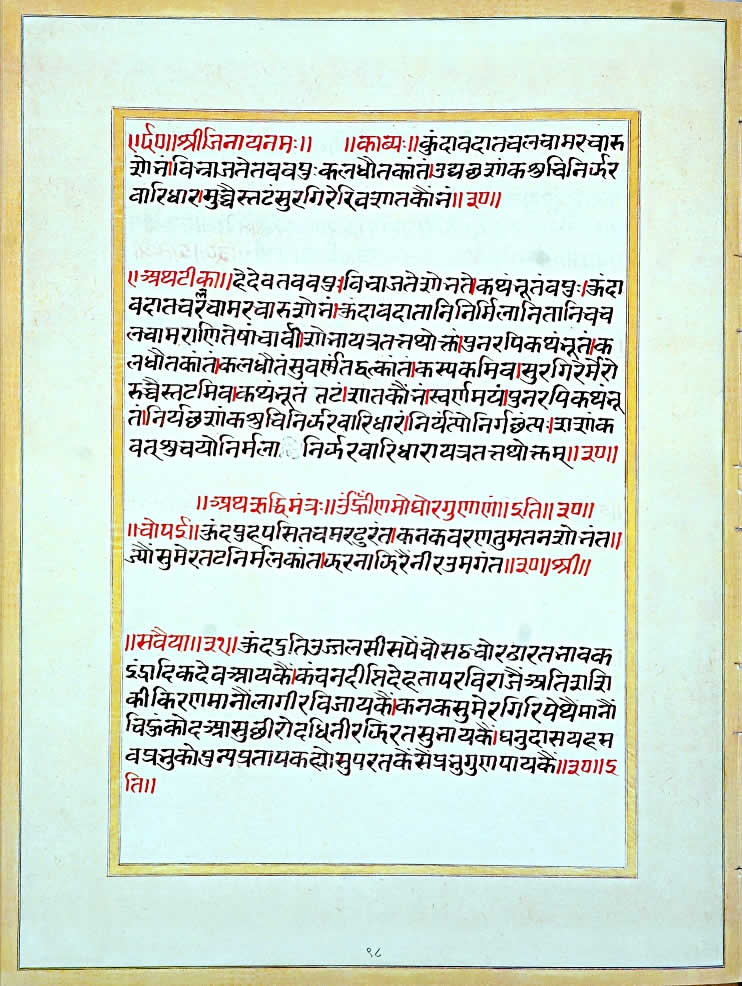 ॥र्द०॥श्रीजिनायनमः॥ ॥काव्यः॥कुंदावदातचलचामरचारु
शोभं।विभ्राजतेतववपुःकलधौतकांतं।उद्यछशांकशुचिनिर्झर
वारिधारामुच्चैस्तटंसुरगिरेरिवशातकौंभं॥३०॥
॥अथटीका॥हेदेवतववपुः।विभ्राजतेशोभते।कथंभूतंवपुः।कुंदा
वदातचलचामरचारुशोभं।कुंदावदातानिनिर्मिलानितानिचच
लचामराणितेषांचार्वीशोभायत्रतत्तथोक्तं।पुनरपिकथंभूतं।क
लधौतकांतं।कलधौतंसुवर्णंतद्वत्कांतं।कस्यकमिव।सुरगिरेर्मेरो
रुच्चैस्तटमिव।कथंभूतं तटं।शातकौंभं।स्वर्णमयं।पुनरपिकथंभू
तं।निर्यछशांकशुचिनिर्झरवारिधारं।निर्यंत्योनिर्गछंत्यः।शशांक
वत्शुचयोनिर्मला निर्झरवारिधारायत्रतत्तथोक्तम्॥३०॥
॥अथऋद्धिमंत्रः॥उंह्रींणमोघोरगुणाणं॥इति॥३०॥
॥चोपई॥कुंदपुहपसितचमरढुरंत।कनकवरणतुमतनशोभंत॥
ज्यौंसुमेरतटनिर्मलकांत।झरनाझरैनीरउमगंत॥३०॥श्री॥
॥सवैया॥३१॥कुंददुतिउज्जलसीसपैंचोसठचोरढारतनावक
इंद्रादिकदेवआयकैं।कंचनदीप्तिदेहतापरविराजैंअतिशशि
कीकिरणमानौंलागीरविजायकैं।कनकसुमेरगिरिपेथैमानौं
चिहुंकोदआसुछीरोदधिनीरझिरतसुभायकैं।धनुदासयहम
वप्रभुकोपुन्यप्रतापकह्योसुपरतकैंसैंप्रभुगुणपायकैं॥३०॥इ
ति॥
९८